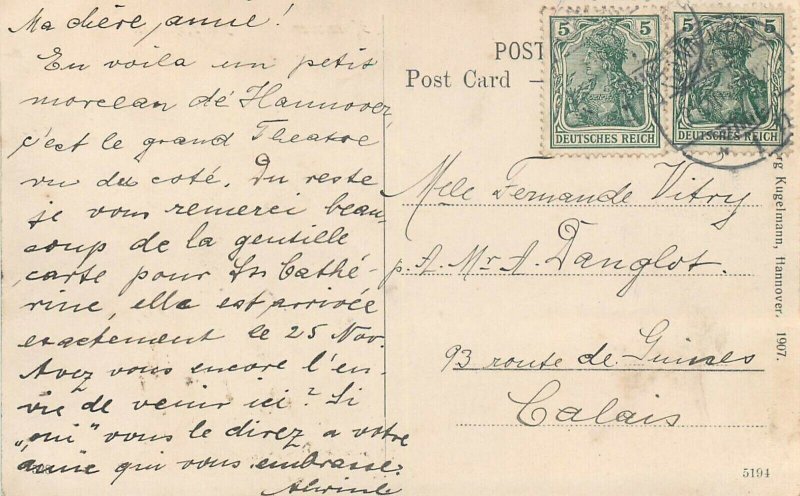 Ma chère amie!
En voila un petit
morceau de Hannover,
c'est le grand Theatre
vu du coté. Du reste
je vous remerci beau-
coup de la gentille
carte pour Ste Cathé-
rine, elle est arrivée
exactement le 25 Nov.
Avez vous encore l'en-
vie de venir ici? Si
„oui" vous le direz a votre
amie qui vous embrasse.
POST
Post Card —
5 5
DEUTSCHES REICH
5 5
DEUTSCHES REICH
Melle Fernande Vitry
p. A. Mr A. Danglot.
93 route de Guines
Calais
rg Kugelmann, Hannover, 1907.
5194